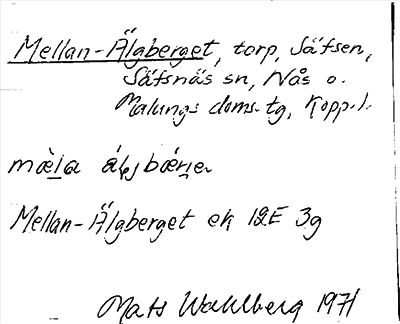 Mellan-Älgberget, torp, Säfsen,
Säfsnäs sn, Nås o.
Malungs doms. tg, Kopp. l.
mæ̀la ál̨jbær̨je
Mellan-Älgberget ek 12E 3g
Mats Wahlberg 1971